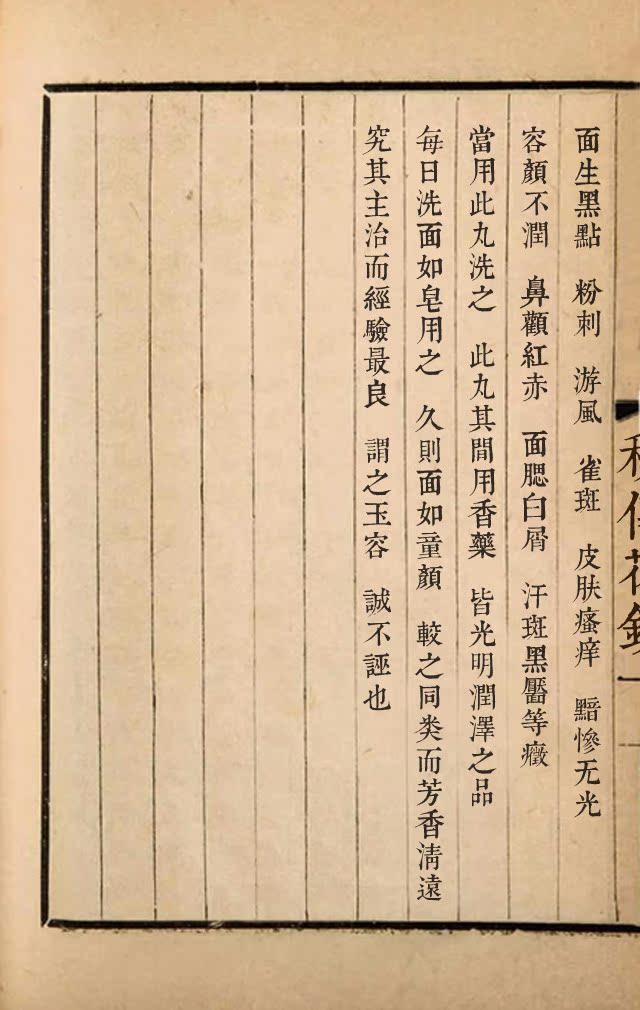 面生黑點　粉刺　游風　雀斑　皮肤瘙痒　黯慘无光
容顏不潤　鼻顴紅赤　面腮白屑　汗斑黑靨等癥
當用此丸洗之　此丸其間用香藥　皆光明潤澤之品
每日洗面如皂用之　久則面如童顏　較之同类而芳香清遠
究其主治而經驗最良　謂之玉容　誠不誣也